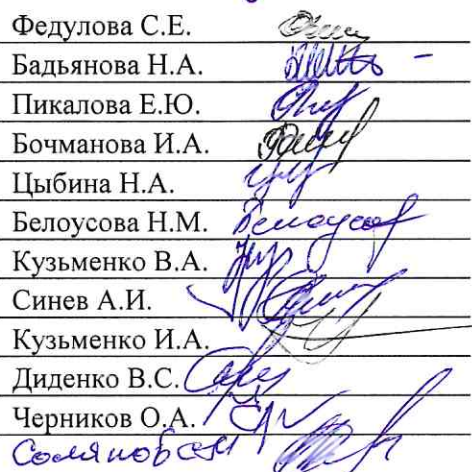 Федулова С.Е.
Бадьянова Н.А.
Пикалова Е.Ю.
Бочманова И.А.
Цыбина Н.А.
Белоусова Н.М. Белоусов
Кузьменко В.А.
Синев А.И.
Кузьменко И.А.
Диденко В.С.
Черников О.А.
Соляков